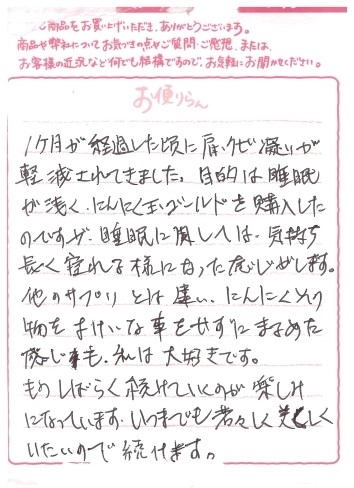 ご商品をお買い上げいただき、ありがとうございます。
商品や弊社についてお気づきの点やご質問・ご感想、または、
お客様の近況など何でも結構ですので、お気軽にお聞かせください。
お便りらん
1ヶ月が経過した頃に肩、クビ凝りが
軽減されてきました。目的は睡眠
が浅く、にんにく玉ゴールドを購入した
のですが、睡眠に関しては、気持ち
長く寝れる様になった感じがします。
他のサプリとは違い、にんにくという
物をよけいな事をせずにまるめた
感じも、私は大好きです。
もうしばらく続けていくのが楽しみ
になっています。いつまでも若々しく美しく
いたいので続けます。